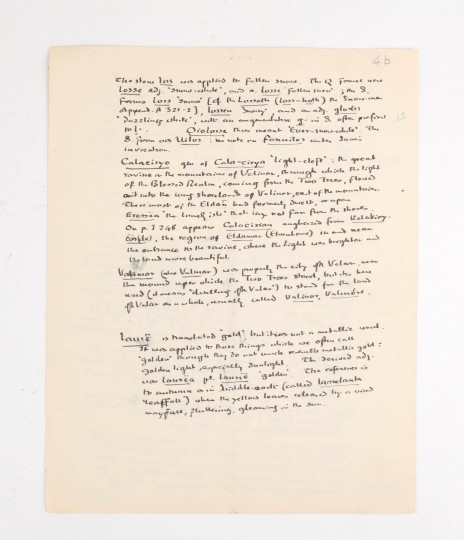 4b
The stem LOS was applied to fallen snow. The Q forms were
Losse adj. 'snow-white', and n. losse 'fallen snow'; the S.
forms Loss 'snow' [cf the Lossoth (loss-hoth) the Snow-men
Append. A 321-2] lossen 'snowy' and an adj. gloss
'dazzling white', with an augmentative g- in S often prefixed
to l-. Oiolosse thus meant 'Ever-snow-white'. The
S form was Uilos: see note on Fanuilos under Sam's
invocation.
Calaciryo gen of Cala-cirya 'light-cleft': the great
ravine in the mountains of Valinor, through which the light
of the Blessed Realm, coming from the Two Trees, flowed
out into the long shoreland of Valinor, east of the mountains.
There most of the Eldar had formerly dwelt, or upon
Eressëa 'the lonely isle' that lay not far from the shores.
On p. I 248 appears Calacirian anglicized from
the region of Eldamar (Elvenhome) in and near
the entrance to the ravine, where the Light was brighter and
the land more beautiful.
Valimar (also Valmar) was properly the city of Valar, near
the mound upon which the Two Trees stood, but it is here
used (it means 'dwelling of the Valar') to stand for the land
of the Valar as a whole, usually called Valinor, Valinórë.
Laurië is translated 'gold', but it was not a metallic word.
It was applied to those things which we often call
'golden' though they do not much resemble metallic gold:
golden light, especially sunlight. The derived adj.
was laurëa pl. laurië 'golden'. The reference is
to autumn as in Middle-earth (called lasselanta
'leaffall') when the yellow leaves released by a wind
may fall, fluttering, gleaming in the sun.